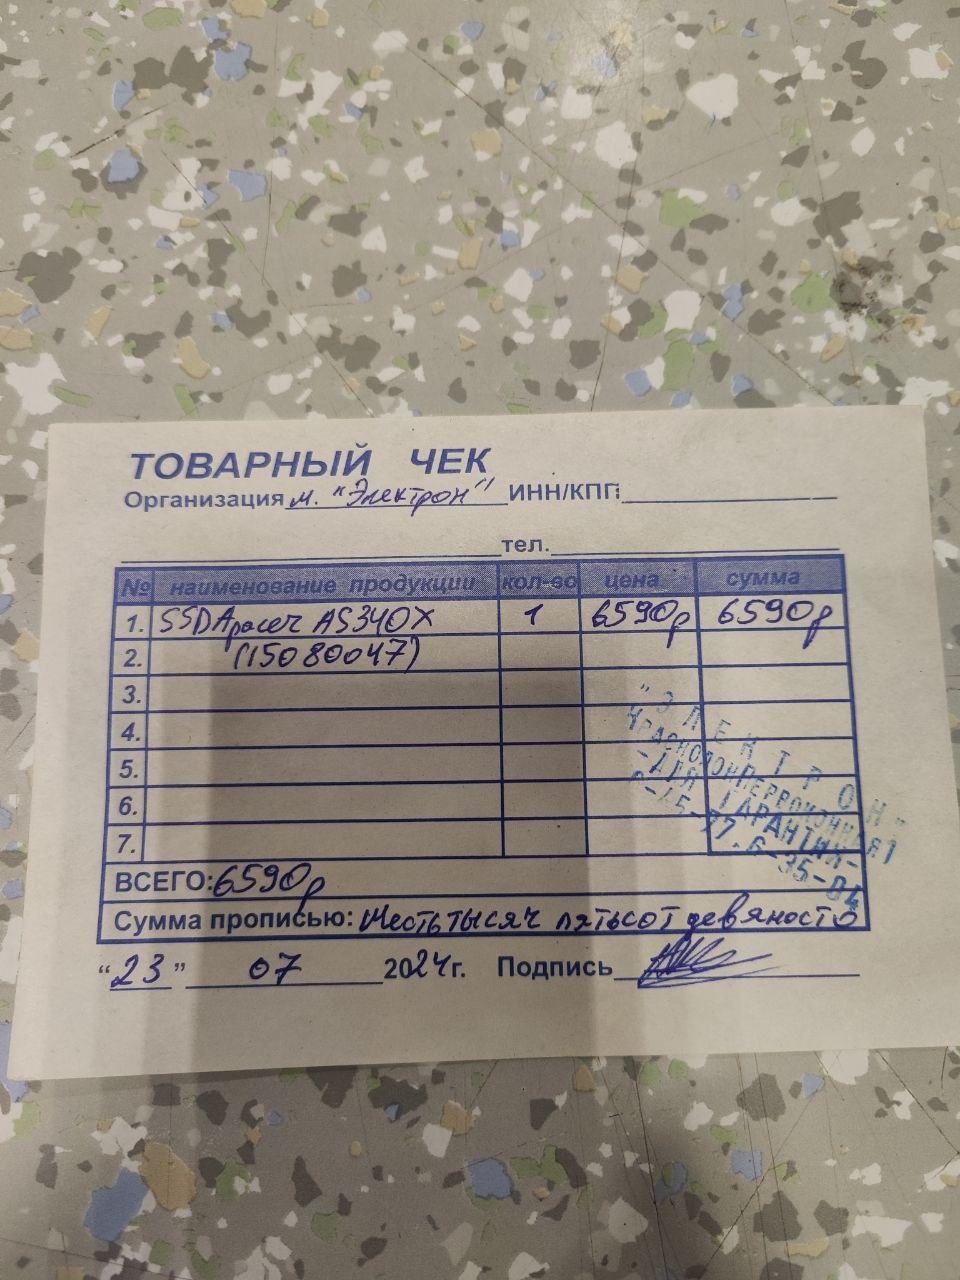 ТОВАРНЫЙ ЧЕК
Организация м. "Электрон" ИНН/КПП
тел.
№ наименование продукции кол-во цена сумма
1. SSD Apacer AS340X 1 6590р 6590р
2. (15080047)
3.
4.
5.
6.
7.
"ЭЛЕКТРОН"
-ДЛЯ ГАРАНТИИ-
6-35-04
ВСЕГО: 6590р
Сумма прописью: Шесть тысяч пятьсот девяносто
"23" 07 2024г. Подпись